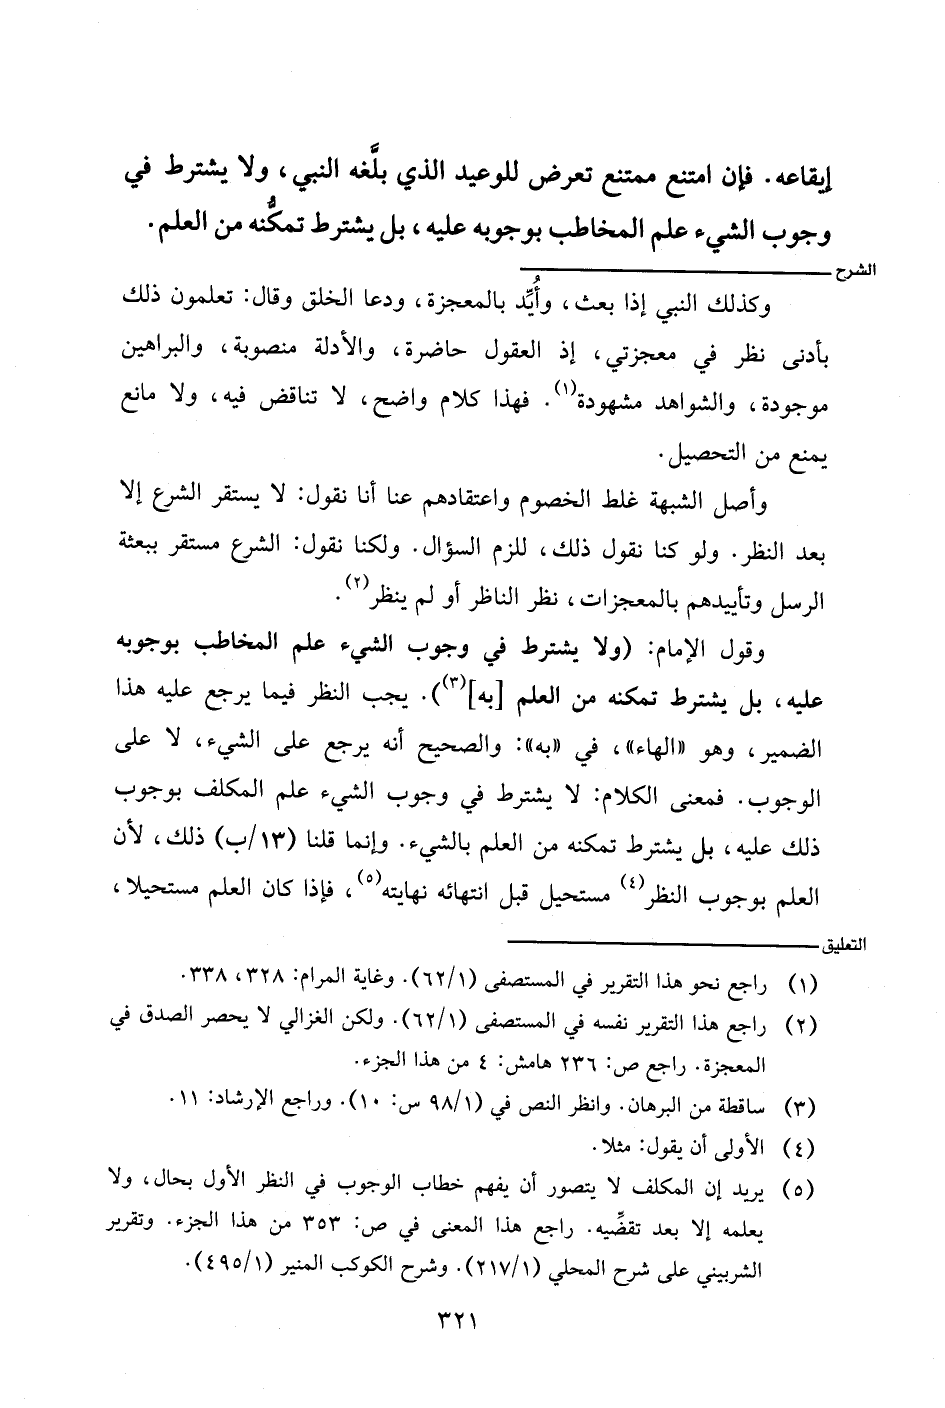 إيقاعه. فإن امتنع ممتنع تعرض للوعيد الذي بلَّغه النبي، ولا يشترط في
وجوب الشيء علم المخاطب بوجوبه عليه، بل يشترط تمكُّنه من العلم.
الشرح
وكذلك النبي إذا بعث، وأُيِّد بالمعجزة، ودعا الخلق وقال: تعلمون ذلك
بأدنى نظر في معجزتي، إذ العقول حاضرة، والأدلة منصوبة، والبراهين
موجودة، والشواهد مشهودة(١). فهذا كلام واضح، لا تناقض فيه، ولا مانع
يمنع من التحصيل.
وأصل الشبهة غلط الخصوم واعتقادهم عنا أنا نقول: لا يستقر الشرع إلا
بعد النظر. ولو كنا نقول ذلك، للزم السؤال. ولكنا نقول: الشرع مستقر ببعثة
الرسل وتأييدهم بالمعجزات، نظر الناظر أو لم ينظر(٢).
وقول الإمام: (ولا يشترط في وجوب الشيء علم المخاطب بوجوبه
عليه، بل يشترط تمكنه من العلم [به](٣)). يجب النظر فيما يرجع عليه هذا
الضمير، وهو «الهاء»، في «به»: والصحيح أنه يرجع على الشيء، لا على
الوجوب. فمعنى الكلام: لا يشترط في وجوب الشيء علم المكلف بوجوب
ذلك عليه، بل يشترط تمكنه من العلم بالشيء. وإنما قلنا (١٣/ب) ذلك، لأن
العلم بوجوب النظر(٤) مستحيل قبل انتهائه نهايته(٥)، فإذا كان العلم مستحيلا،
التعليق
(١) راجع نحو هذا التقرير في المستصفى (٦٢/١). وغاية المرام: ٣٢٨، ٣٣٨.
(٢) راجع هذا التقرير نفسه في المستصفى (٦٢/١). ولكن الغزالي لا يحصر الصدق في
المعجزة. راجع ص: ٢٣٦ هامش: ٤ من هذا الجزء.
(٣) ساقطة من البرهان. وانظر النص في (٩٨/١ س: ١٠). وراجع الإرشاد: ١١.
(٤) الأولى أن يقول: مثلا.
(٥) يريد إن المكلف لا يتصور أن يفهم خطاب الوجوب في النظر الأول بحال، ولا
يعلمه إلا بعد تقضِّيه. راجع هذا المعنى في ص: ٣٥٣ من هذا الجزء. وتقرير
الشربيني على شرح المحلي (٢١٧/١). وشرح الكوكب المنير (٤٩٥/١).
٣٢١